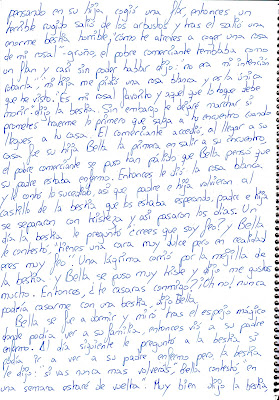 pensando en su hija, cogió una flor, entonces un
terrible rugido salió de los arbustos y tras él salió una
enorme bestia horrible, "como te atreves a coger una rosa
de mi rosal" gruñó, el pobre comerciante temblaba como
un flan y casi sin poder hablar dijo: no era mi intención
robarla, mi hija me pidió una rosa blanca y es la única
que he visto. Es mi rosal favorito y aquel que lo toque debe
morir dijo la bestia. Sin embargo te dejaré marchar si
prometes traerme lo primero que salga a tu encuentro cuando
llegues a tu casa. El comerciante accedió, al llegar a su
casa fue su hija Bella la primera en salir a su encuentro,
el pobre comerciante se puso tan pálido que Bella pensó que
su padre estaba enfermo. Entonces le dió la rosa blanca
y le contó lo sucedido, así que padre e hija volvieron al
castillo de la bestia que los estaba esperando, padre e hija
se separan con tristeza y así pasaron los días. Un
día la bestia le preguntó ¿crees que soy feo? y Bella
le contestó, "tienes una cara muy dulce pero en realidad
eres muy feo." Una lágrima corrió por la mejilla de
la bestia y Bella se puso muy triste y dijo me gustas
mucho. Entonces, ¿te casarás conmigo? ¡Oh no! nunca
podría casarme con una bestia, dijo Bella.
Bella se fue a dormir y miró tras el espejo mágico
donde podía ver a su familia, entonces vió a su padre
enfermo. Al día siguiente le preguntó a la bestia si
podía ir a ver a su padre enfermo pero la bestia
le dijo: si vas nunca mas volverás, Bella contestó "en
una semana estaré de vuelta". Muy bien dijo la bestia